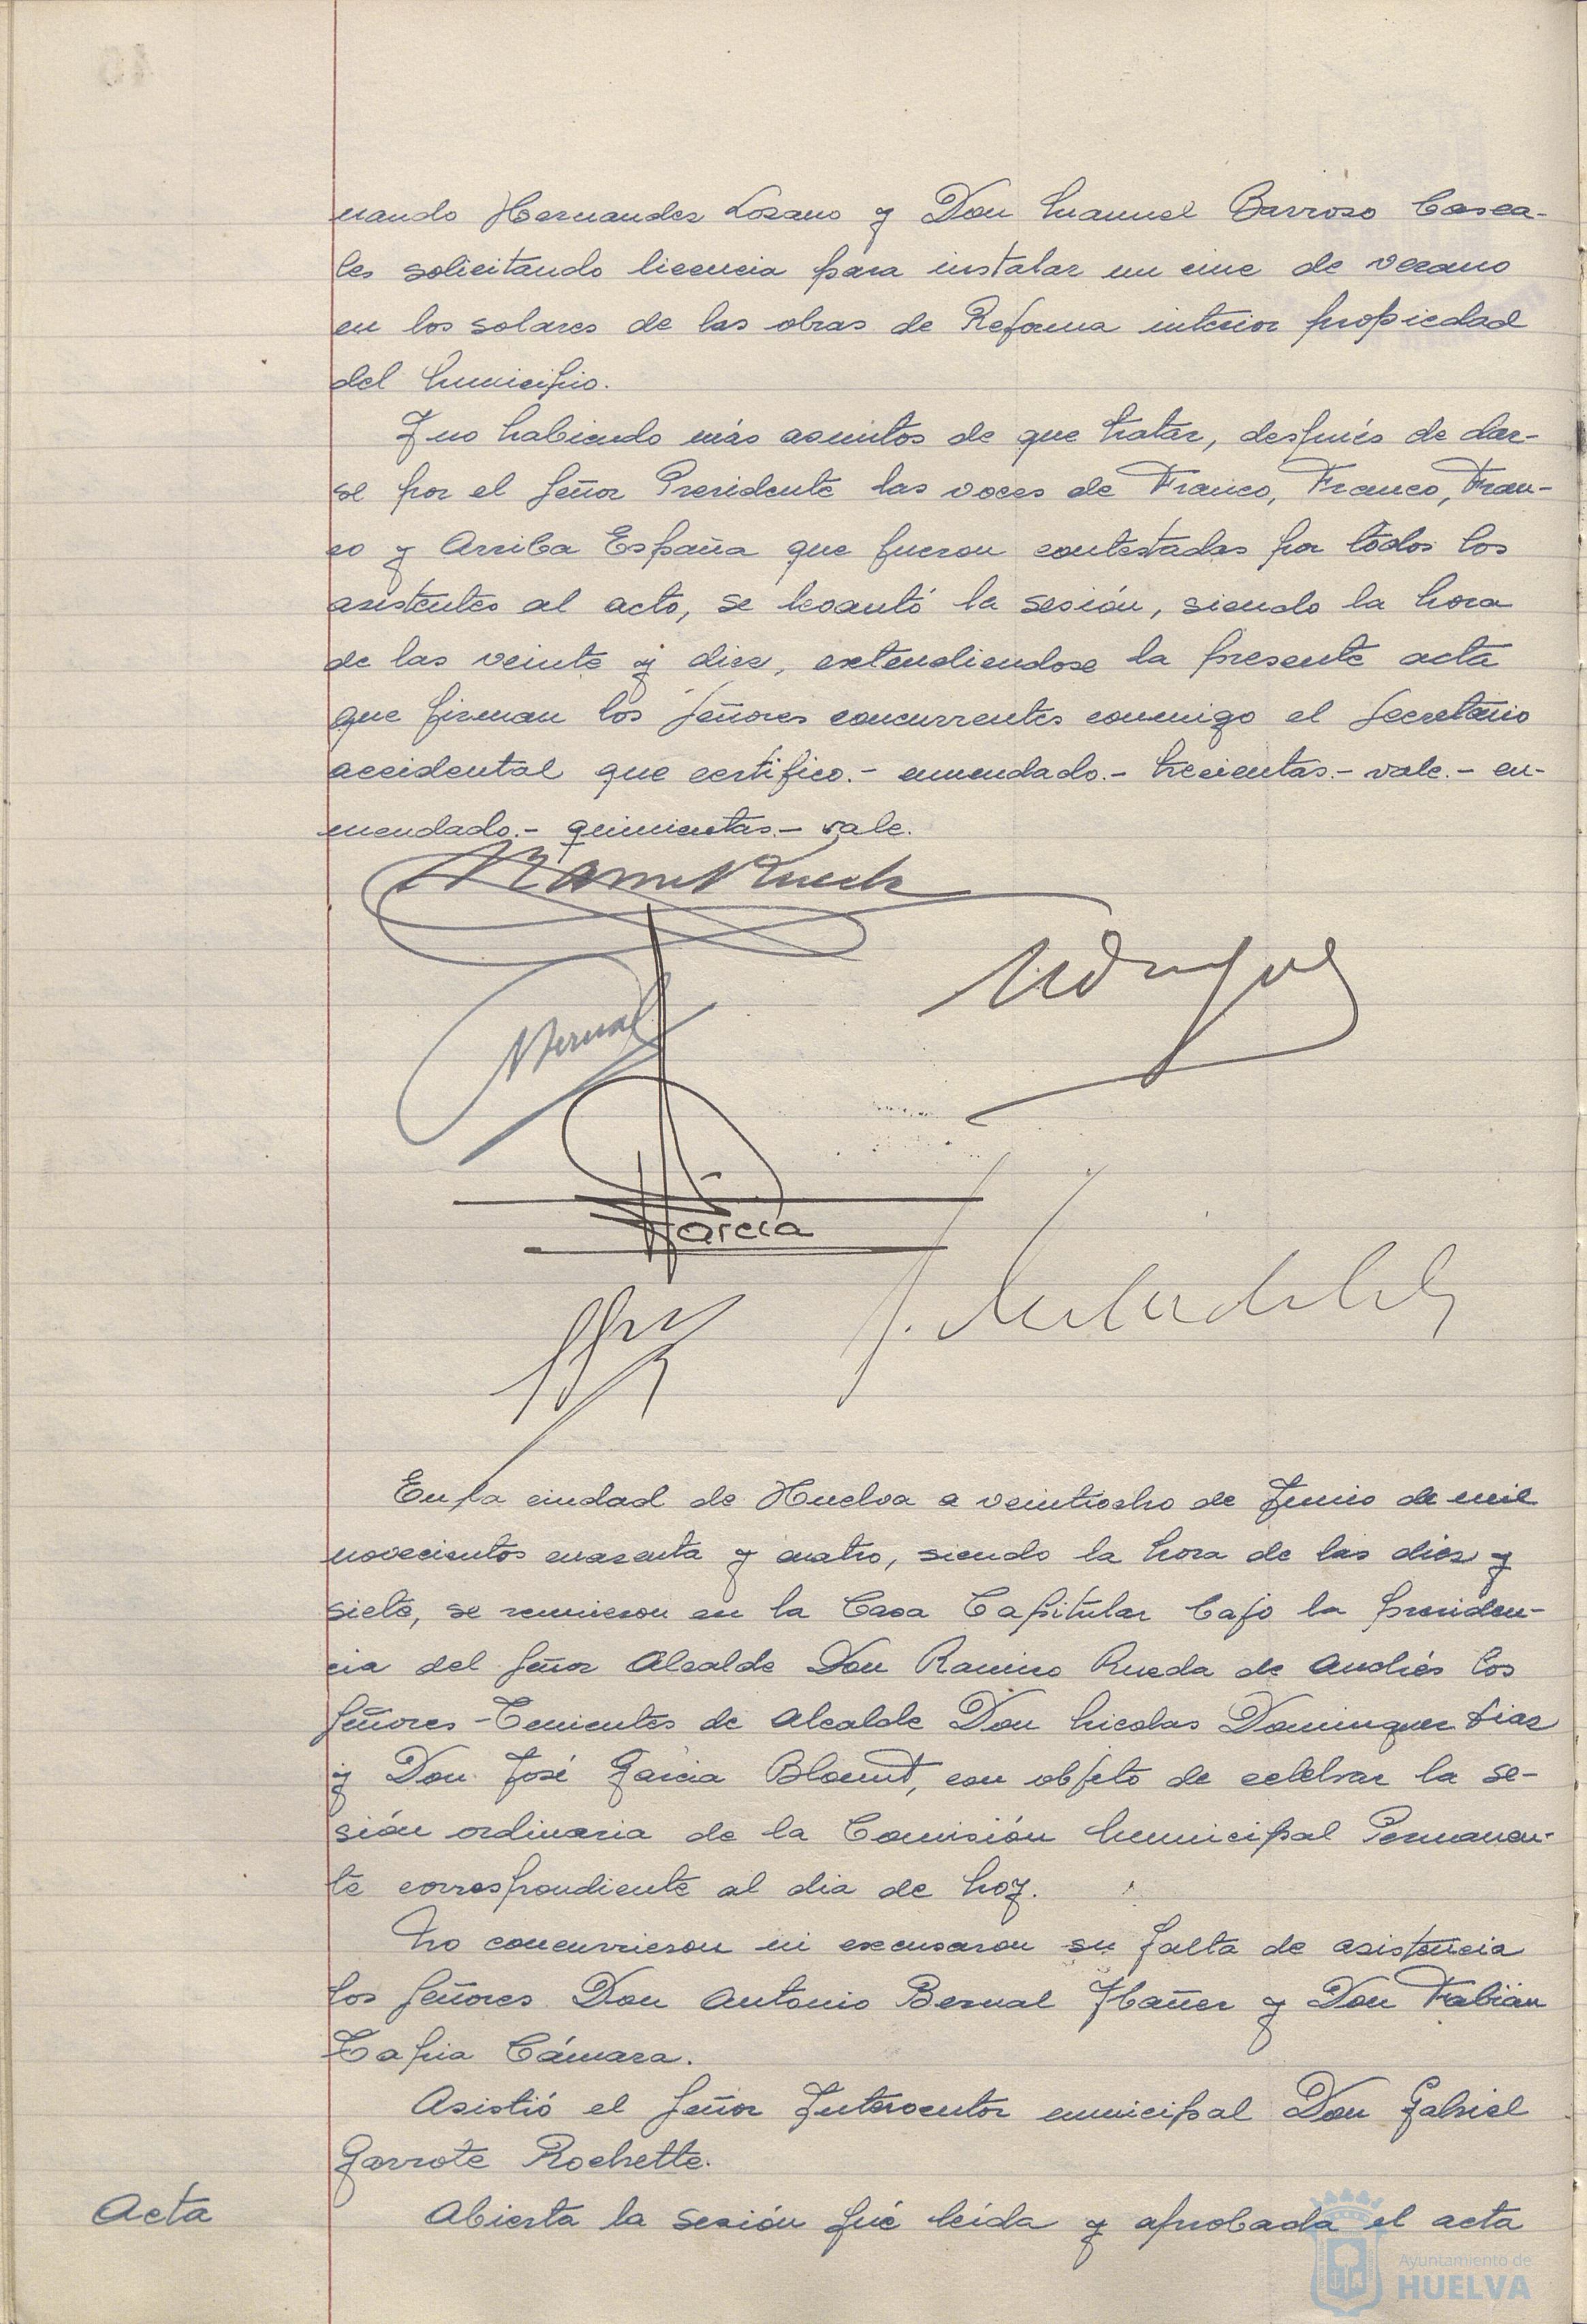 nando Hernandez Lozano y Don Manuel Barroso Casca-
les solicitando licencia para instalar un cine de verano
en los solares de las obras de Reforma interior propiedad
del Municipio.
Y no habiendo más asuntos de que tratar, después de dar-
se por el Señor Presidente las voces de Franco, Franco, Fran-
co y Arriba España que fueron contestadas por todos los
asistentes al acto, se levantó la sesión, siendo la hora
de las veinte y diez, extendiendose la presente acta
que firman los Señores concurrentes conmigo el Secretario
accidental que certifico.- enmendado.- trecientas.- vale.- en-
mendado.- quinientas.- vale.
Bernal
García
En la ciudad de Huelva a veintiocho de Junio de mil
novecientos cuarenta y cuatro, siendo la hora de las diez y
siete, se reunieron en la Casa Capitular bajo la presiden-
cia del Señor Alcalde Don Ramiro Rueda de Andrés los
Señores Tenientes de Alcalde Don Nicolas Dominguez Diaz
y Don José Garcia Blount, con objeto de celebrar la se-
sión ordinaria de la Comisión Municipal Permanen-
te correspondiente al dia de hoy.
No concurrieron ni excusaron su falta de asistencia
los Señores Don Antonio Bernal Ybañez y Don Fabián
Tapia Cámara.
Asistió el Señor Interventor municipal Don Gabriel
Garrote Rochette.
Acta
Abierta la sesión fué leída y aprobada el acta
Ayuntamiento de
HUELVA